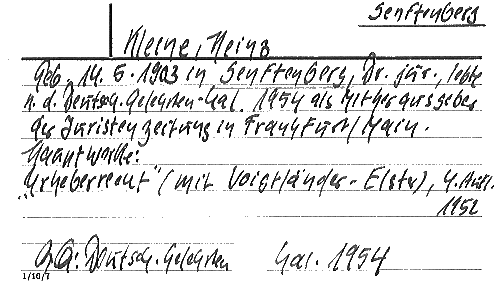 Senftenberg
Kleine, Heinz
Geb. 14. 5. 1903 in Senftenberg, Dr. jur., lebte
n. d. Deutsch. Gelehrten-Kal. 1954 als Mitherausgeber
der Juristenzeitung in Frankfurt/Main.
Hauptwerke:
"Urheberrecht" (mit Voigtländer-Elster), 4. Aufl.
1952
Deutsch. Gelehrten Kal. 1954
1/10/7